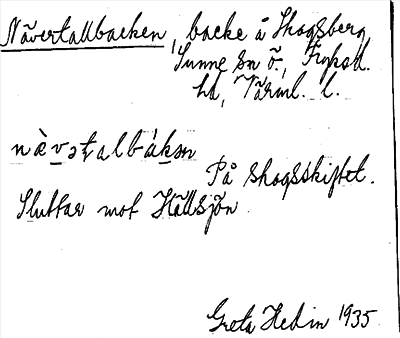 Nävertallbacken, backe å Skogsberg,
Sunne sn ö., Fryksd.
hd, Värml. l.
nä̀vəṭalbákən
På skogsskiftet.
Sluttar mot Hällsjön.
Greta Hedin 1935